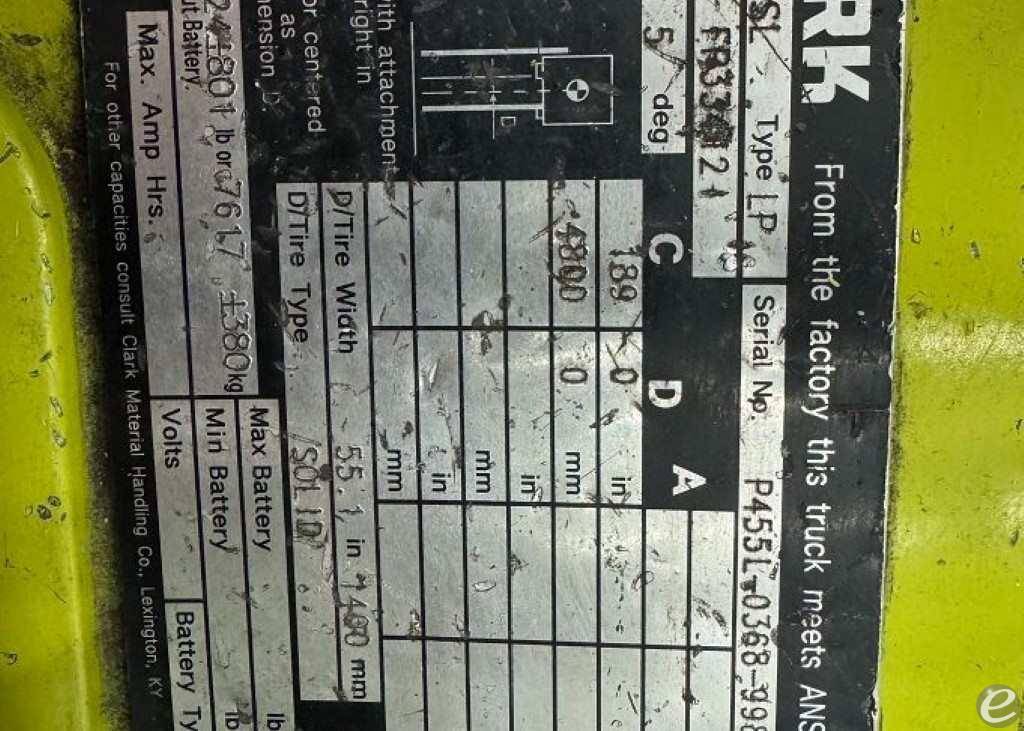 RK From the factory this truck meets ANS
SL Type LP Serial No. P455L-0368-998
5 deg
C D A
189 0 in
4800 0 mm
in
mm
in
mm
D
ith attachment
right in
or centered
as
ension D.
D/Tire Width 55.1 in 1400 mm
D/Tire Type SOLID
lb or 7617 ±380 kg
ut Battery.
Max Battery lb
Min Battery lb
Max. Amp Hrs. Volts Battery Ty
For other capacities consult Clark Material Handling Co., Lexington, KY
e